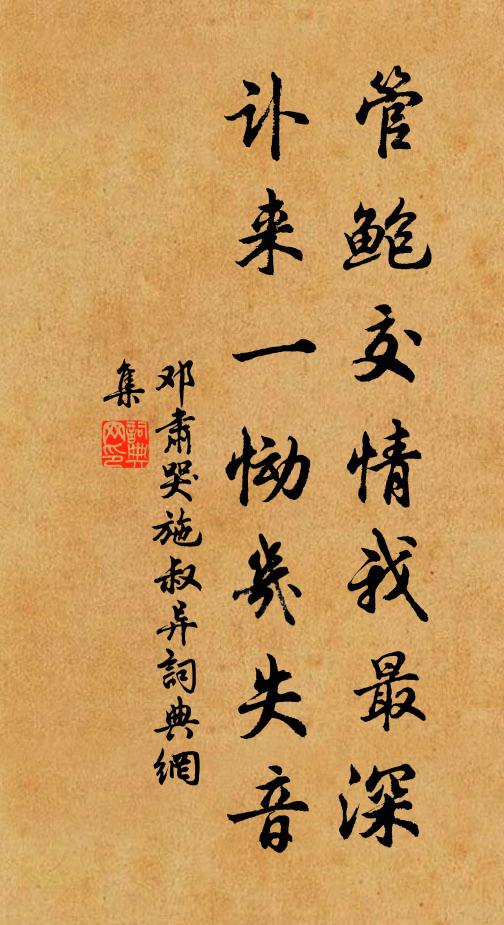 管鲍交情我最深
讣来一恸几失音
邓肃哭施叔异詞典網
集
詞典网印